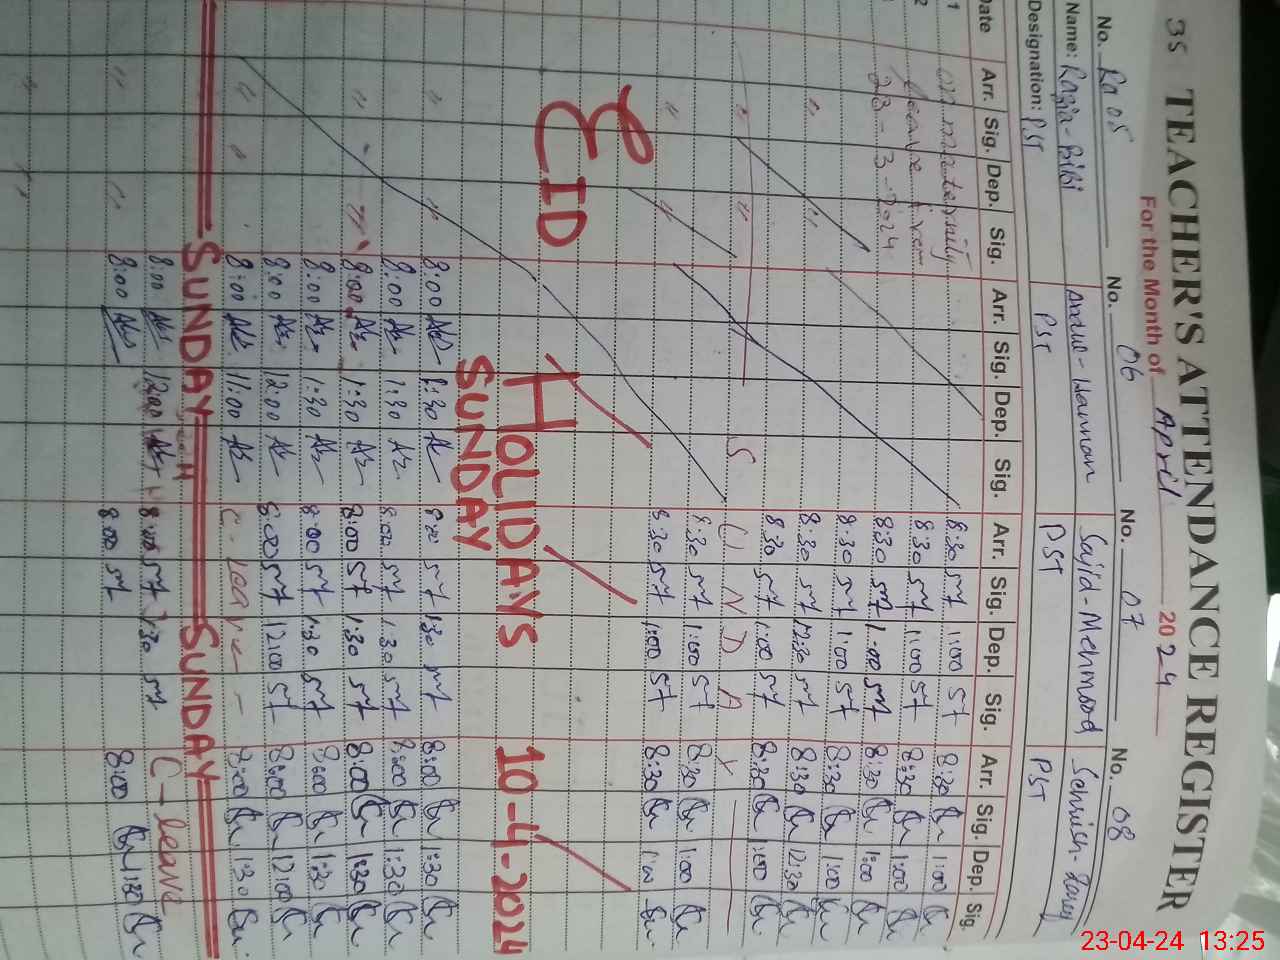 35 TEACHER'S ATTENDANCE REGISTER
For the Month of April 2024
No. Ra 05 No. 06 No. 07 No. 08
Name: Razia-Bibi Abdul-Hannan Sajid-Mehmood Sehrish
Designation: PST PST PST PST
Date Arr. Sig. Dep. Sig. Arr. Sig. Dep. Sig. Arr. Sig. Dep. Sig. Arr. Sig. Dep. Sig.
1 on maternity 8:30 1:00 8:30 1:00
2 leave from 8:30 1:00 8:30 1:00
23-3-2024 8:30 1:00 8:30 1:00
8:30 1:00 8:30 1:00
" " 8:30 12:30 8:30 12:30
8:30 1:00 8:30 1:00
" " S U N D A Y
8:30 1:00 8:30 1:00
" " 8:30 1:00 8:30 1:00
EID HOLIDAYS 10-4-2024
SUNDAY
" " 8:00 1:30 8:00 1:30 8:00 1:30
8:00 1:30 8:00 1:30 8:00 1:30
" " 8:00 1:30 8:00 1:30 8:00 1:30
8:00 1:30 8:00 1:30 8:00 1:30
8:00 12:00 8:00 12:00 8:00 12:00
" " 8:00 11:00 C. Leave - 8:00 1:30
SUNDAY SUNDAY
8:00 12:00 8:00 1:30 C - leave
" " 8:00 8:00 8:00 1:30
23-04-24 13:25